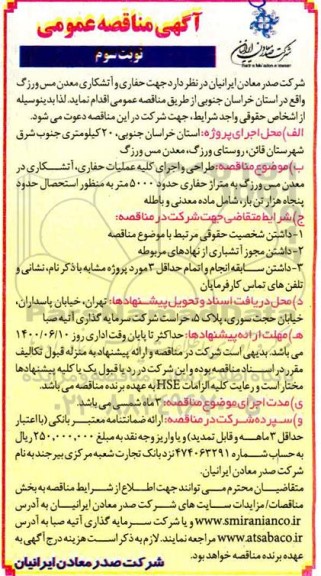 آگهی مناقصه عمومی
نوبت سوم
شرکت صدر معادن ایرانیان
شرکت صدر معادن ایرانیان در نظر دارد جهت حفاری و آتشکاری معدن مس ورزگ
واقع در استان خراسان جنوبی از طریق مناقصه عمومی اقدام نماید. لذا بدینوسیله
از اشخاص حقوقی واجد شرایط، جهت شرکت در این مناقصه دعوت می شود.
الف) محل اجرای پروژه: استان خراسان جنوبی، ۲۰ کیلومتری جنوب شرق
شهرستان قائن، روستای ورزگ، معدن مس ورزگ
ب) موضوع مناقصه: طراحی و اجرای کلیه عملیات حفاری، آتشکاری در
معدن مس ورزگ به متراژ حفاری حدود ۵۰۰۰ متر به منظور استحصال حدود
پنجاه هزار تن بار، شامل ماده معدنی و باطله
ج) شرایط متقاضی جهت شرکت در مناقصه:
۱- داشتن شخصیت حقوقی مرتبط با موضوع مناقصه
۲- داشتن مجوز آتشباری از نهادهای مربوطه
۳- داشتن سابقه انجام و اتمام حداقل ۳ مورد پروژه مشابه با ذکر نام، نشانی و
تلفن های تماس کارفرمایان
د) محل دریافت اسناد و تحویل پیشنهادها: تهران، خیابان پاسداران،
خیابان حجت سوری، پلاک ۵، حراست شرکت سرمایه گذاری آتیه صبا
هـ) مهلت ارائه پیشنهادها: حداکثر تا پایان وقت اداری روز ۱۴۰۰/۰۶/۱۰
می باشد. بدیهی است شرکت در مناقصه و ارائه پیشنهاد به منزله قبول تکالیف
مقرر در اسناد مناقصه بوده و این شرکت در رد یا قبول یک یا کلیه پیشنهادها
مختار است و رعایت کلیه الزامات HSE به عهده برنده مناقصه می باشد.
ی) مدت اجرای موضوع مناقصه: ۳ ماه شمسی می باشد.
و) سپرده شرکت در مناقصه: ارائه ضمانتنامه معتبر بانکی (با اعتبار
حداقل ۳ ماهه و قابل تمدید) و یا واریز وجه نقد به مبلغ ۲۵۰,۰۰۰,۰۰۰ ریال
به حساب شماره ۴۷۴۰۶۳۲۹۱ نزد بانک تجارت شعبه مرکزی بیرجند به نام
شرکت صدر معادن ایرانیان.
متقاضیان محترم می توانند جهت اطلاع از شرایط مناقصه به بخش
مناقصات/ مزایدات سایت های شرکت صدر معادن ایرانیان به آدرس
www.smiranianco.ir و یا شرکت سرمایه گذاری آتیه صبا به آدرس
www.atsabaco.ir مراجعه نمایند. لازم به ذکر است هزینه درج آگهی به
عهده برنده مناقصه خواهد بود.
شرکت صدر معادن ایرانیان